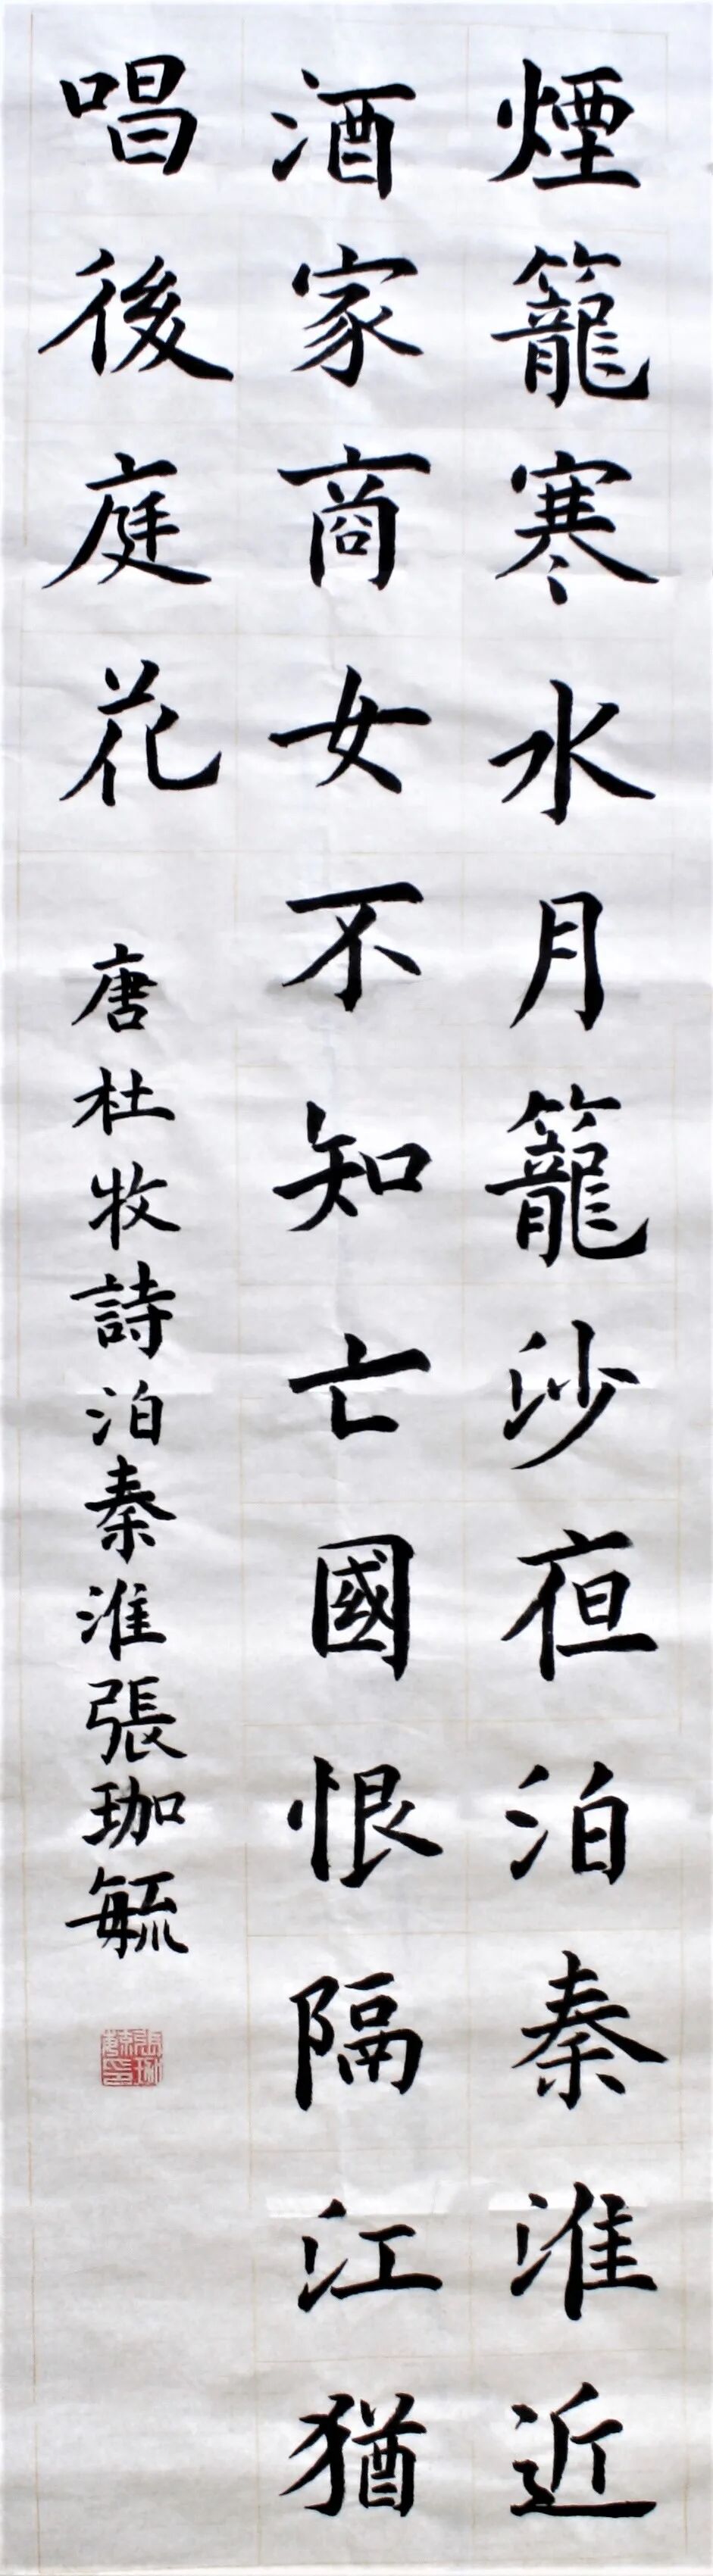 煙籠寒水月籠沙亱泊秦淮近
酒家商女不知亡國恨隔江猶
唱後庭花 唐杜牧詩泊秦淮張珈毓
張珈毓印